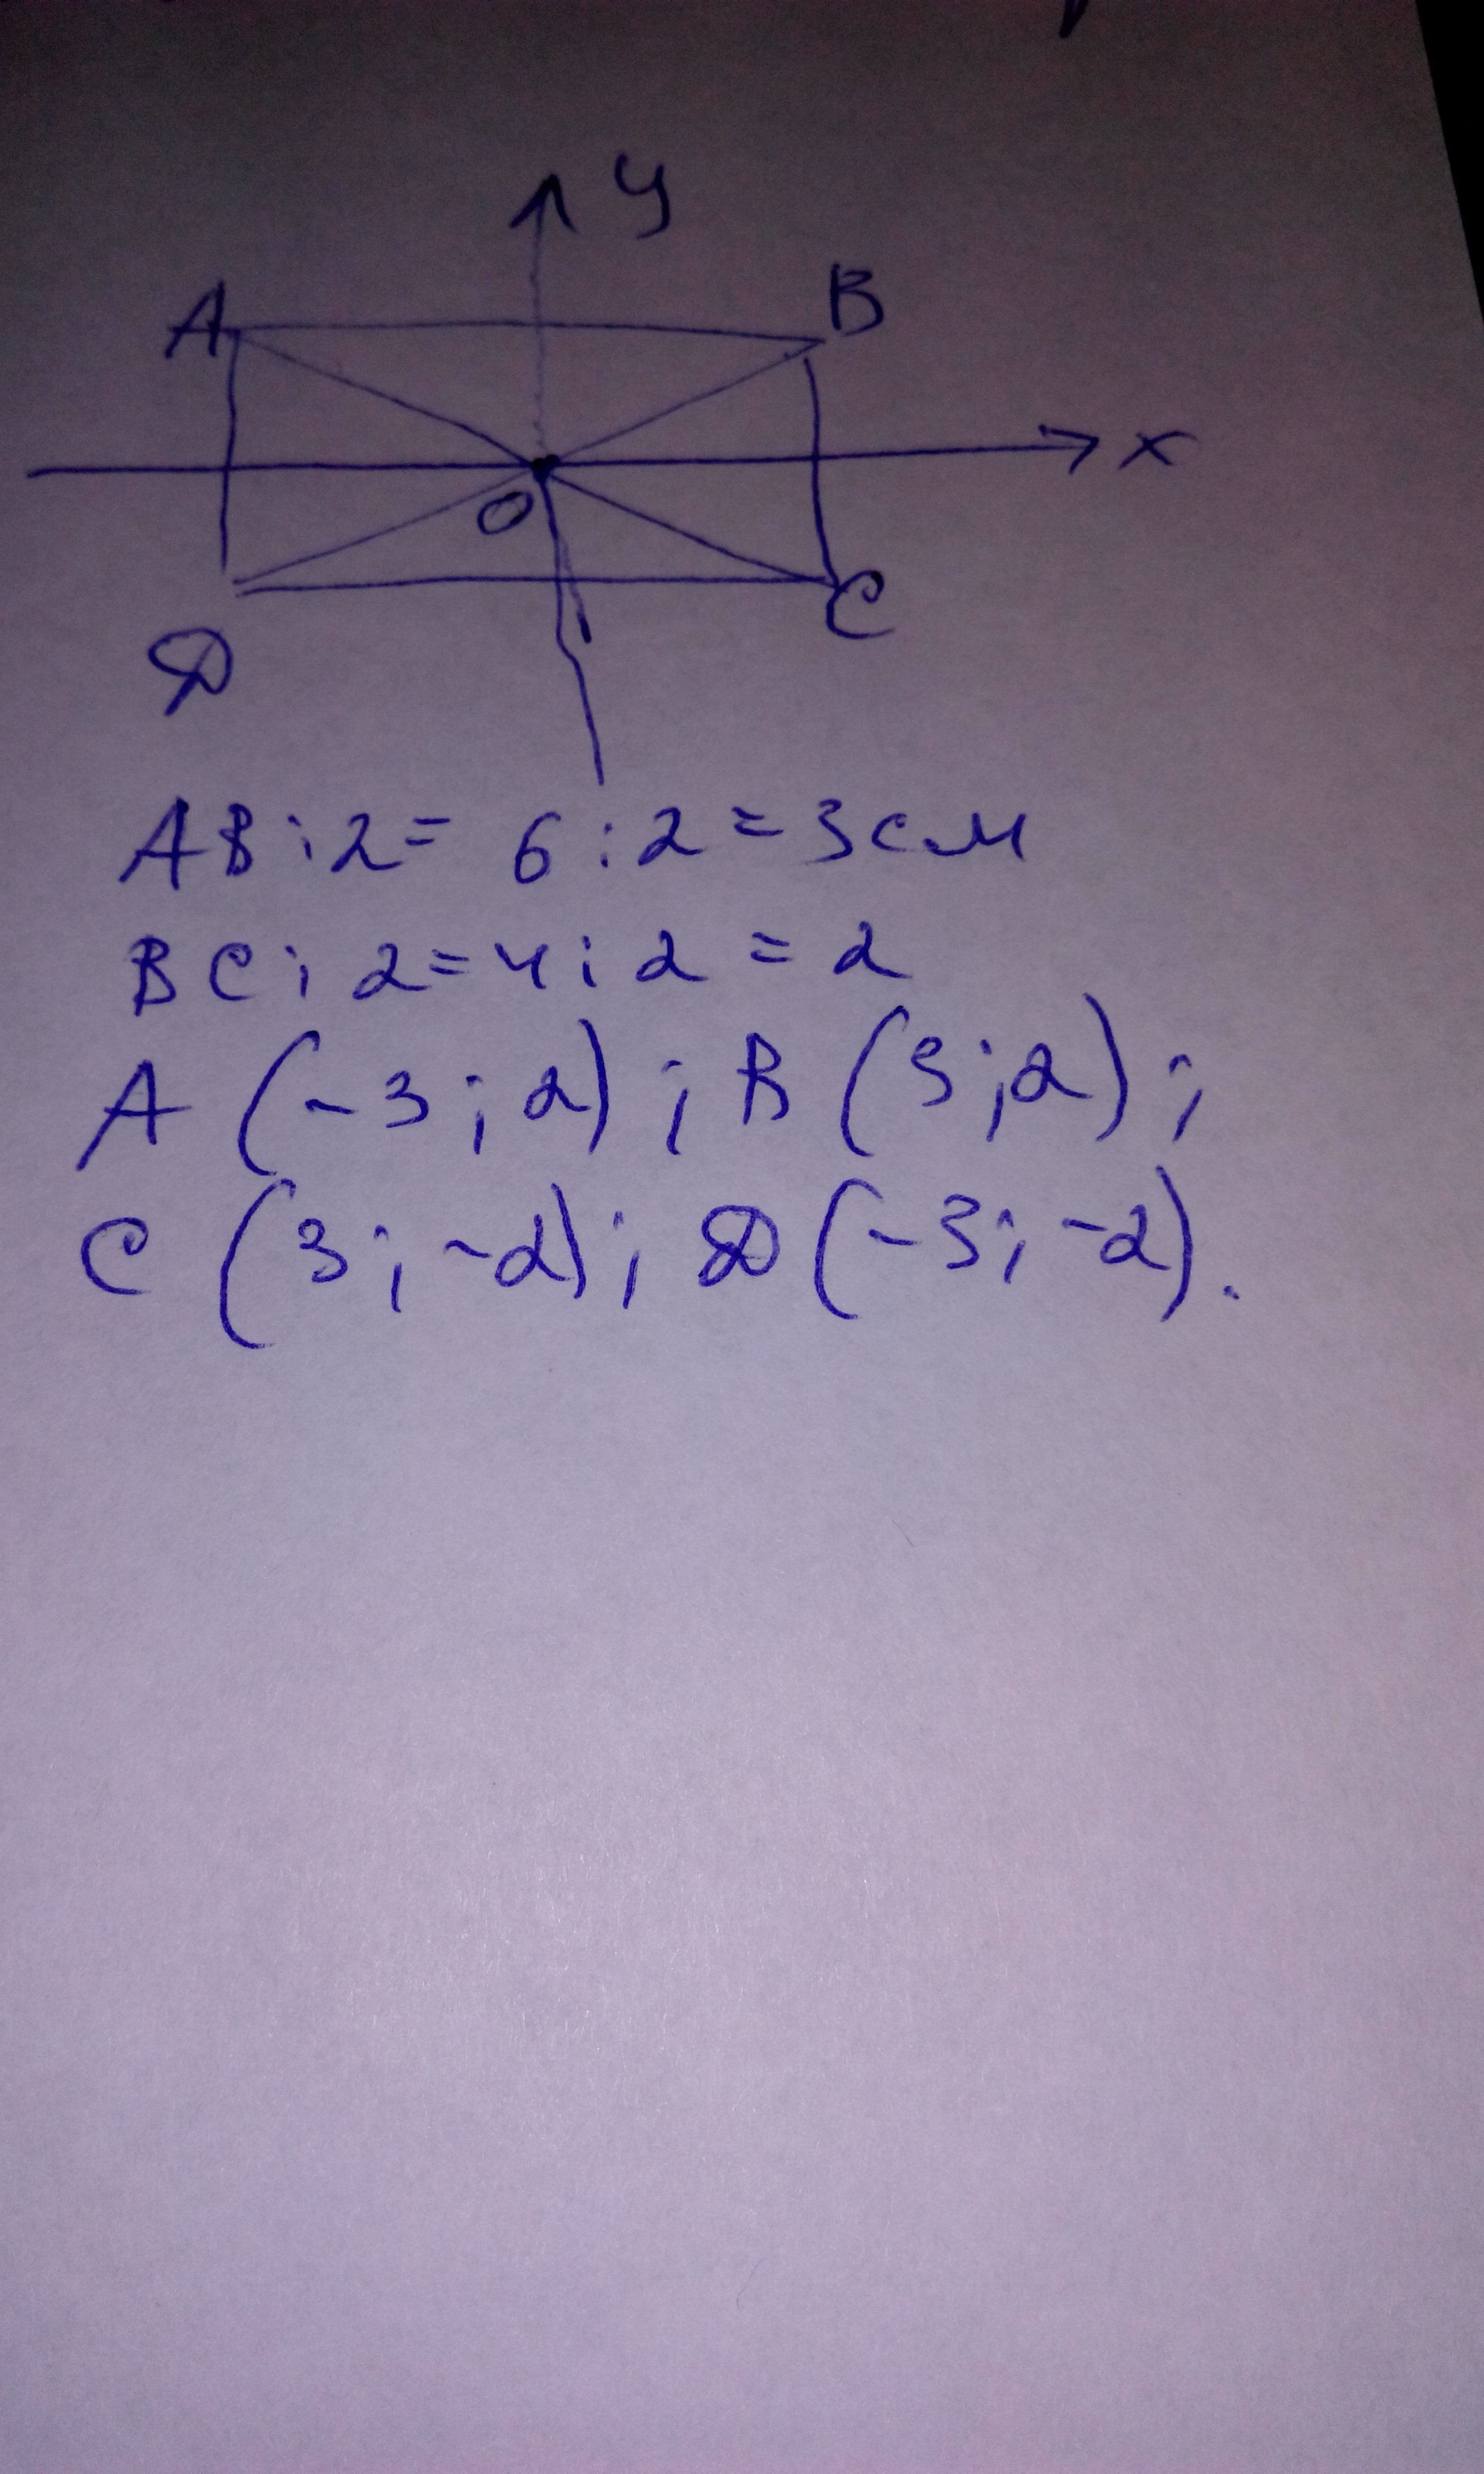 y
A B
x
O
D C
AB : 2 = 6 : 2 = 3 см
BC : 2 = 4 : 2 = 2
A (-3 ; 2) ; B (3 ; 2) ;
C (3 ; -2) ; D (-3 ; -2).